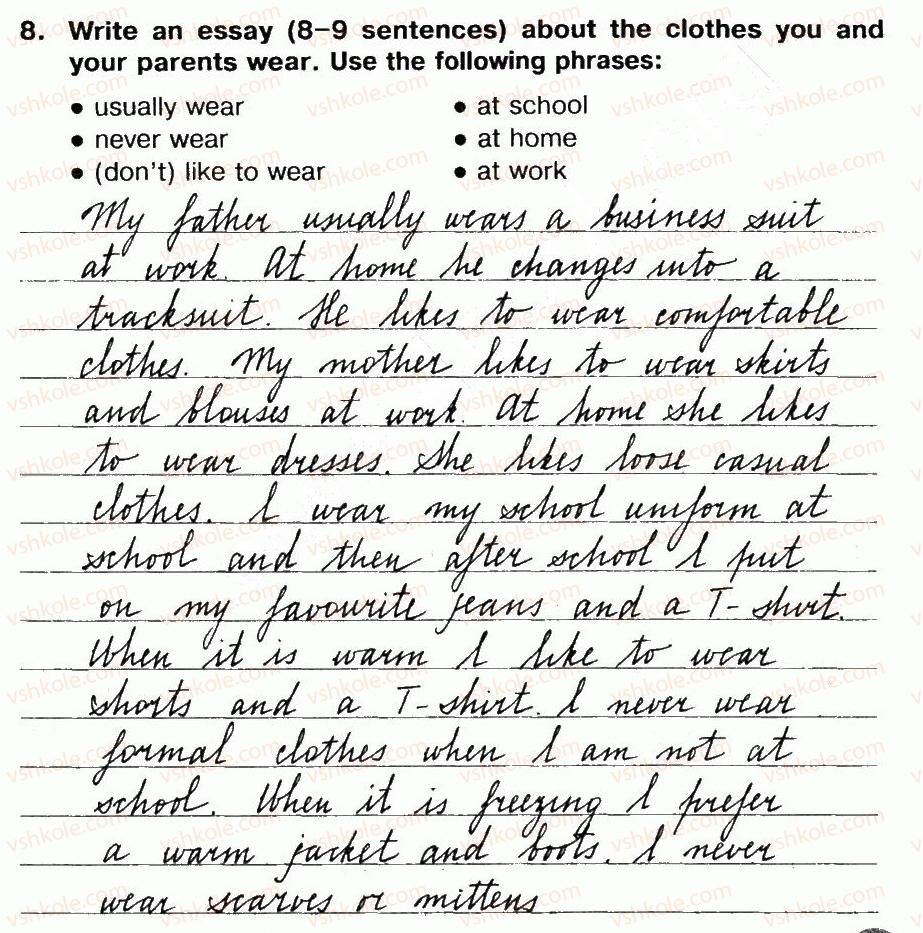 8. Write an essay (8–9 sentences) about the clothes you and
your parents wear. Use the following phrases:
• usually wear
• never wear
• (don't) like to wear
• at school
• at home
• at work
My father usually wears a business suit
at work. At home he changes into a
tracksuit. He likes to wear comfortable
clothes. My mother likes to wear skirts
and blouses at work. At home she likes
to wear dresses. She likes loose casual
clothes. I wear my school uniform at
school and then after school I put
on my favourite jeans and a T-shirt.
When it is warm I like to wear
shorts and a T-shirt. I never wear
formal clothes when I am not at
school. When it is freezing I prefer
a warm jacket and boots. I never
wear scarves or mittens
vshkole.com